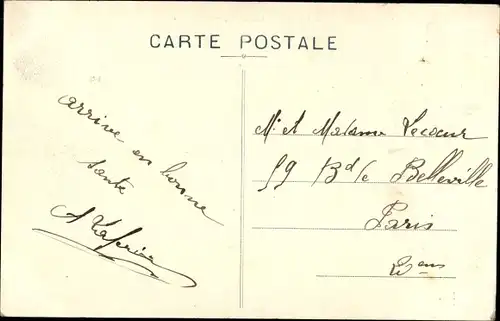 CARTE POSTALE
arrive en bonne
sante
Mr et Madame Lecoeur
59 Bd de Belleville
Paris